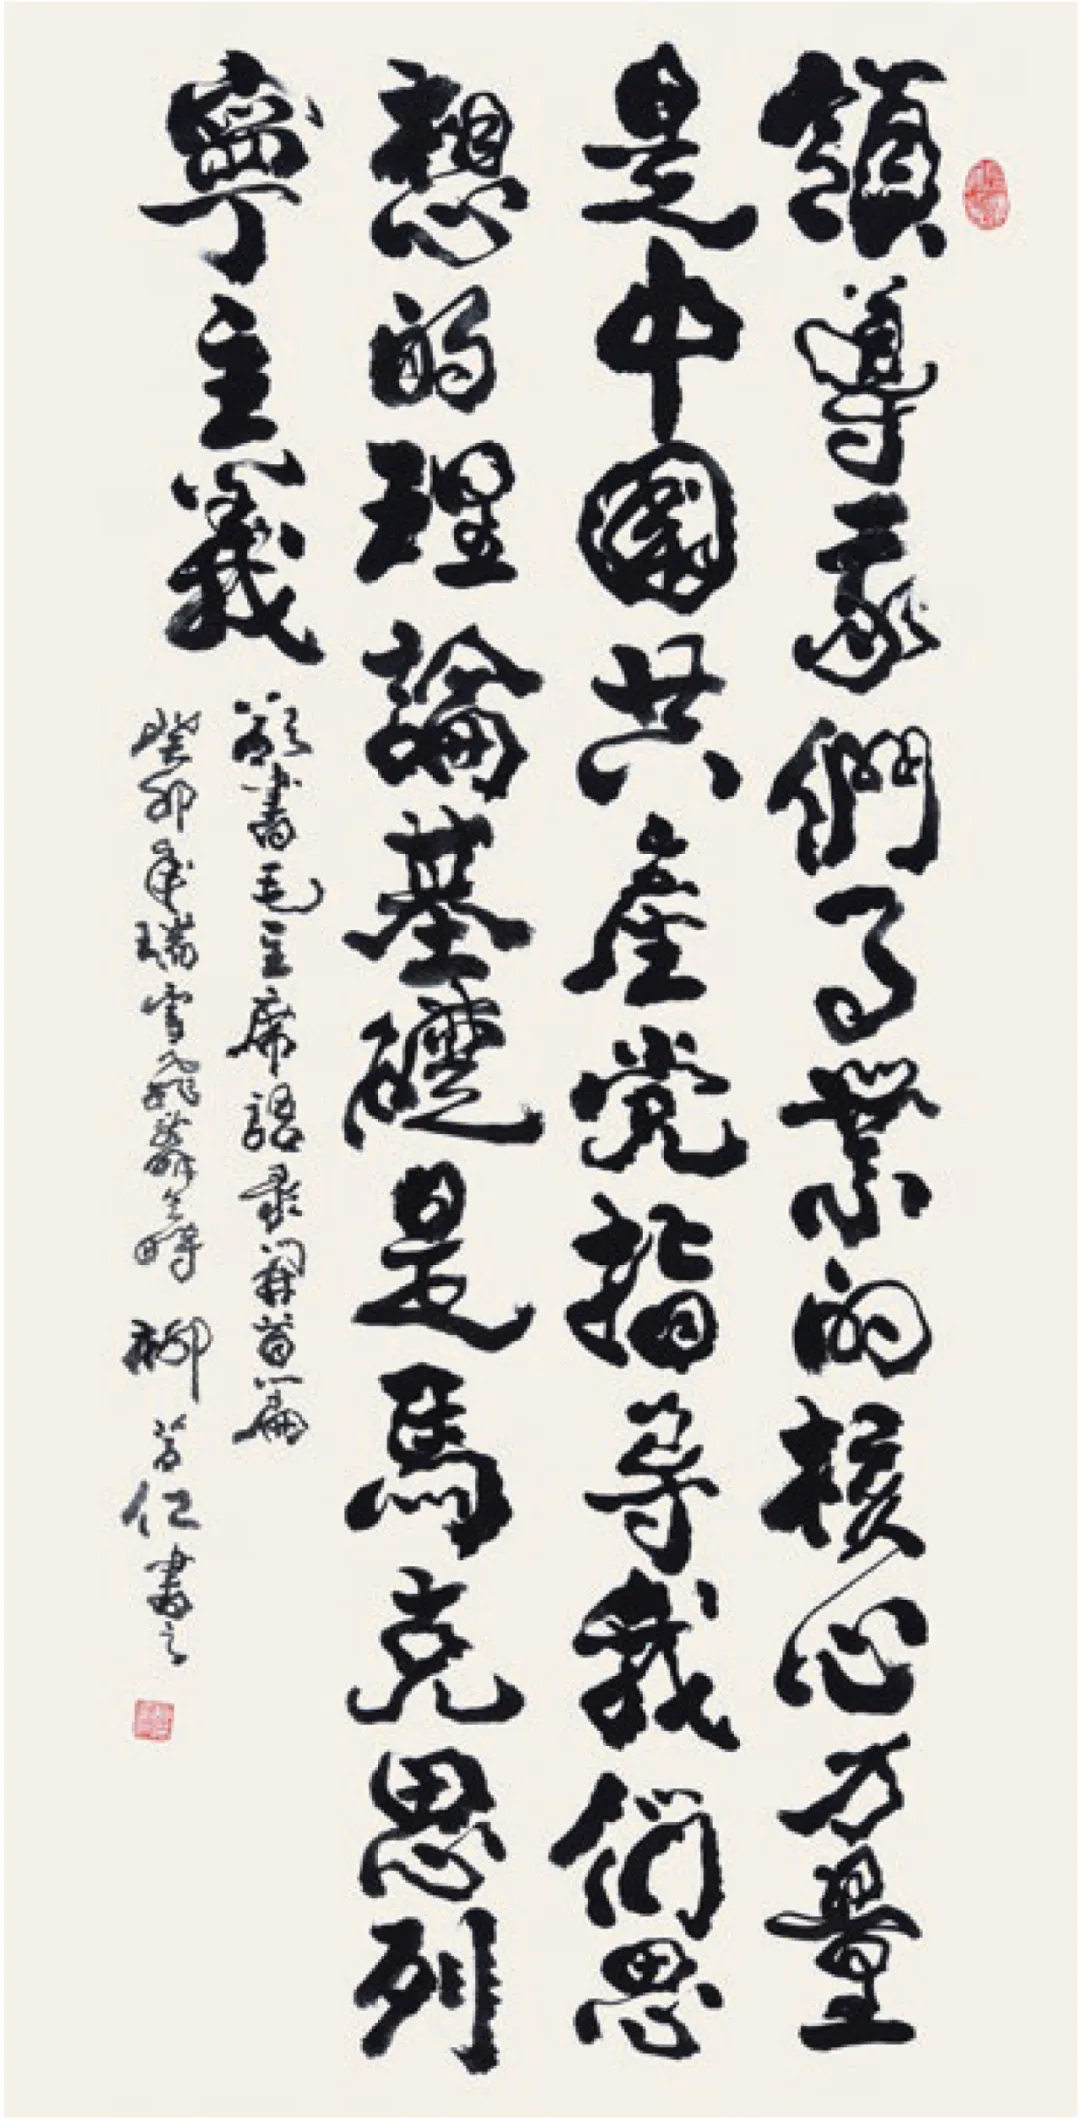 領導我們事業的核心力量
是中國共產党指导我们思
想的理論基礎是馬克思列
寧主義
書毛主席語录開首篇
癸卯年瑞雪飛舞之時 柳 仁書之